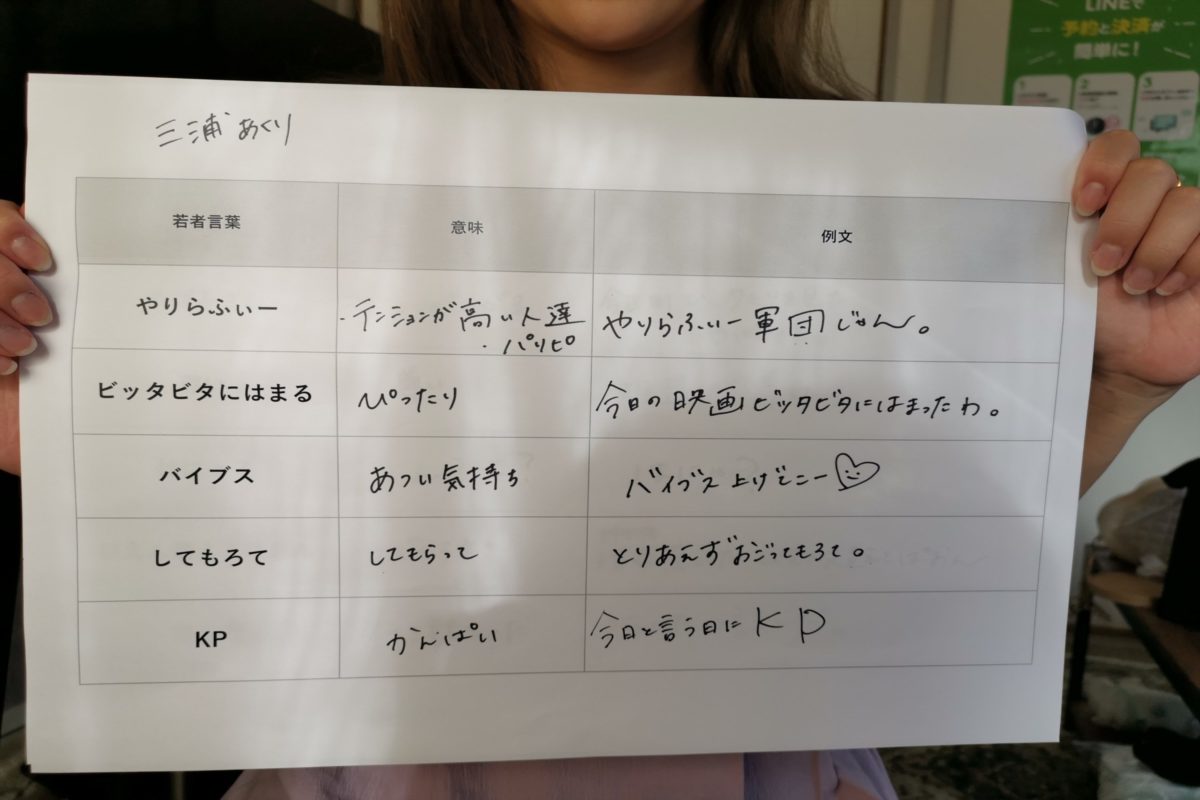 LINEで
予約と決済が
簡単に!
1
2
3
三浦あぐり
若者言葉 意味 例文
やりらふぃー ・テンションが高い人達 やりらふぃー軍団じゃん。
・パリピ
ビッタビタにはまる ぴったり 今日の映画ビッタビタにはまったわ。
バイブス あつい気持ち バイブス上げてこー
してもろて してもらって とりあえずおごってもろて。
KP かんぱい 今日と言う日にKP